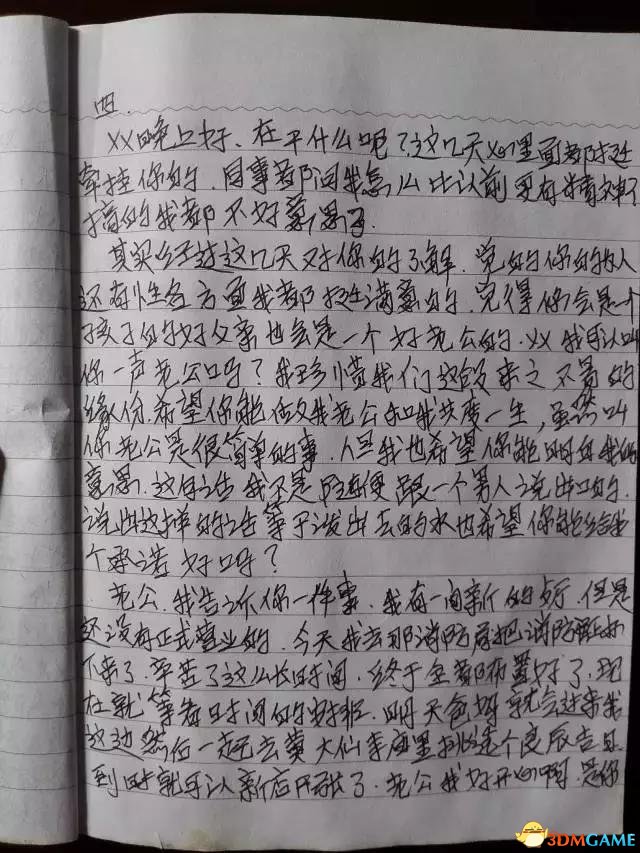 四.
XX晚上好、在干什么呢?这几天心里面都挺
牵挂你的、同事都问我怎么比以前更有精神了
搞的我都不好意思了
其实经过这几天对你的了解、觉的你的为人
还有性各方面我都挺满意的、觉得你会是一个
孩子的好父亲也会是一个好老公的、XX我可以叫
你一声老公吗?我珍惜我们这段来之不易的
缘份、希望你能做我老公和我共度一生,虽然叫
你老公是很简单的事、但我也希望你能明白我的
意思、这句话我不是随便跟一个男人说出口的、
说出这样的话等于泼出去的水也希望你能给我
个承诺好吗?
老公、我告诉你一件事、我有一间新的店、但是
还没有正式营业的、今天我去那消防局把消防证拿
下来了、辛苦了这么长时间、终于全都布置好了、现
在就等着时间的安排、明天爸妈就会过来我
这边然后一起去黄大仙李庙里挑选个良辰吉日
到时就可以新店开张了、老公我好开心啊、是你
3DMGAME